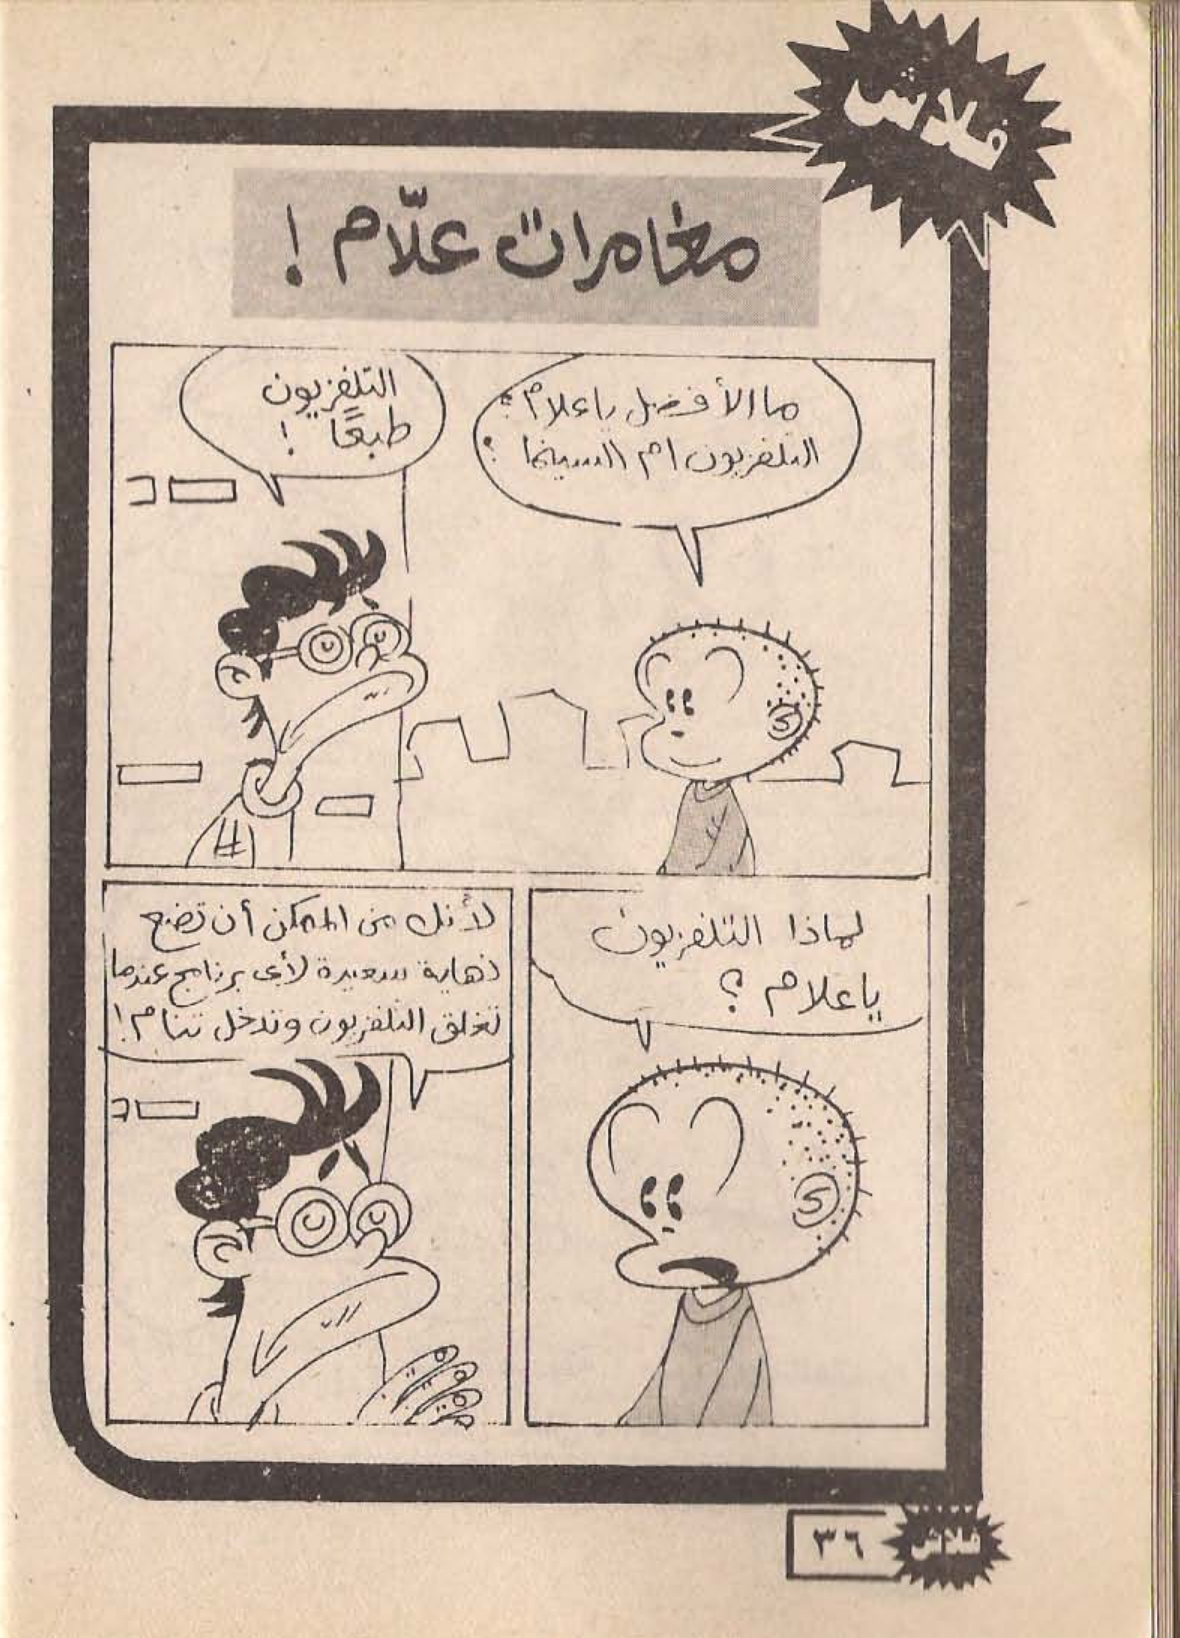 فلاش
مغامرات علّام !
ما الأفضل يا علام ؟
التلفزيون أم السينما ؟
التلفزيون
طبعًا !
لماذا التلفزيون
يا علام ؟
لأنك من الممكن أن تضع
نهاية سعيدة لأى برنامج عندما
تغلق التلفزيون وتدخل تنام !
٣٦
فلاش